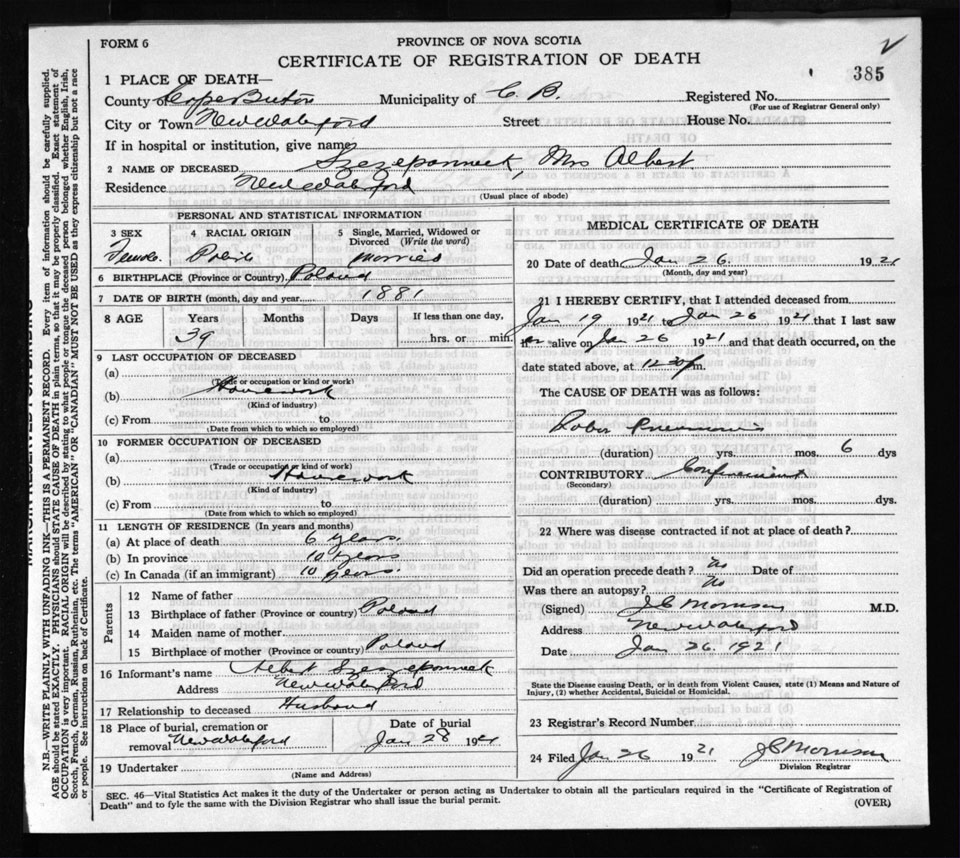 FORM 6
PROVINCE OF NOVA SCOTIA
CERTIFICATE OF REGISTRATION OF DEATH
385
1 PLACE OF DEATH—
County of Cape Breton Municipality of C. B. Registered No.
(For use of Registrar General only)
City or Town New Waterford Street House No.
If in hospital or institution, give name
2 NAME OF DECEASED Szczepanneck, Mrs Albert
Residence New Waterford
(Usual place of abode)
PERSONAL AND STATISTICAL INFORMATION
3 SEX 4 RACIAL ORIGIN 5 Single, Married, Widowed or Divorced (Write the word)
Female Polish Married
6 BIRTHPLACE (Province or Country) Poland
7 DATE OF BIRTH (month, day and year) 1881
8 AGE Years Months Days If less than one day,
39 hrs. or min.
9 LAST OCCUPATION OF DECEASED
(a)
(Trade or occupation or kind or work)
(b) Housework
(Kind of industry)
(c) From to
(Date from which to which so employed)
10 FORMER OCCUPATION OF DECEASED
(a)
(Trade or occupation or kind of work)
(b) Housework
(Kind of industry)
(c) From to
(Date from which to which so employed)
11 LENGTH OF RESIDENCE (In years and months)
(a) At place of death 6 years.
(b) In province 10 years
(c) In Canada (if an immigrant) 10 years.
Parents
12 Name of father
13 Birthplace of father (Province or country) Poland
14 Maiden name of mother
15 Birthplace of mother (Province or country) Poland
16 Informant's name Albert Szczepanneck
Address New Waterford
17 Relationship to deceased Husband
18 Place of burial, cremation or removal New Waterford
Date of burial
Jan 28 1921
19 Undertaker
(Name and Address)
MEDICAL CERTIFICATE OF DEATH
20 Date of death Jan 26 1921
(Month, day and year)
21 I HEREBY CERTIFY, that I attended deceased from
Jan 19 1921 to Jan 26 1921 that I last saw
her alive on Jan 26 1921 and that death occurred, on the
date stated above, at 12.30 m.
The CAUSE OF DEATH was as follows:
Lobar Pneumonia
(duration) yrs. mos. 6 dys
CONTRIBUTORY Confinement
(Secondary)
(duration) yrs. mos. dys.
22 Where was disease contracted if not at place of death?
Did an operation precede death? No Date of
Was there an autopsy? No
(Signed) J C Morrison M.D.
Address New Waterford
Date Jan 26. 1921
State the Disease causing Death, or in death from Violent Causes, state (1) Means and Nature of
Injury, (2) whether Accidental, Suicidal or Homicidal.
23 Registrar's Record Number
24 Filed Jan 26 1921 J C Morrison
Division Registrar
SEC. 46—Vital Statistics Act makes it the duty of the Undertaker or person acting as Undertaker to obtain all the particulars required in the "Certificate of Registration of
Death" and to fyle the same with the Division Registrar who shall issue the burial permit.
(OVER)
N.B.—WRITE PLAINLY WITH UNFADING INK—THIS IS A PERMANENT RECORD. Every item of information should be carefully supplied.
AGE should be stated EXACTLY. PHYSICIANS should STATE CAUSE OF DEATH in plain terms, so that it may be properly classified. Exact statement of
OCCUPATION is very important. RACIAL ORIGIN will be described by stating to what people or tongue the deceased person belonged whether English, Irish,
Scotch, French, German, Russian, Ruthenian, etc. The terms "AMERICAN" OR "CANADIAN" MUST NOT BE USED as they express citizenship but not a race
or people. See instructions on back of Certificate.